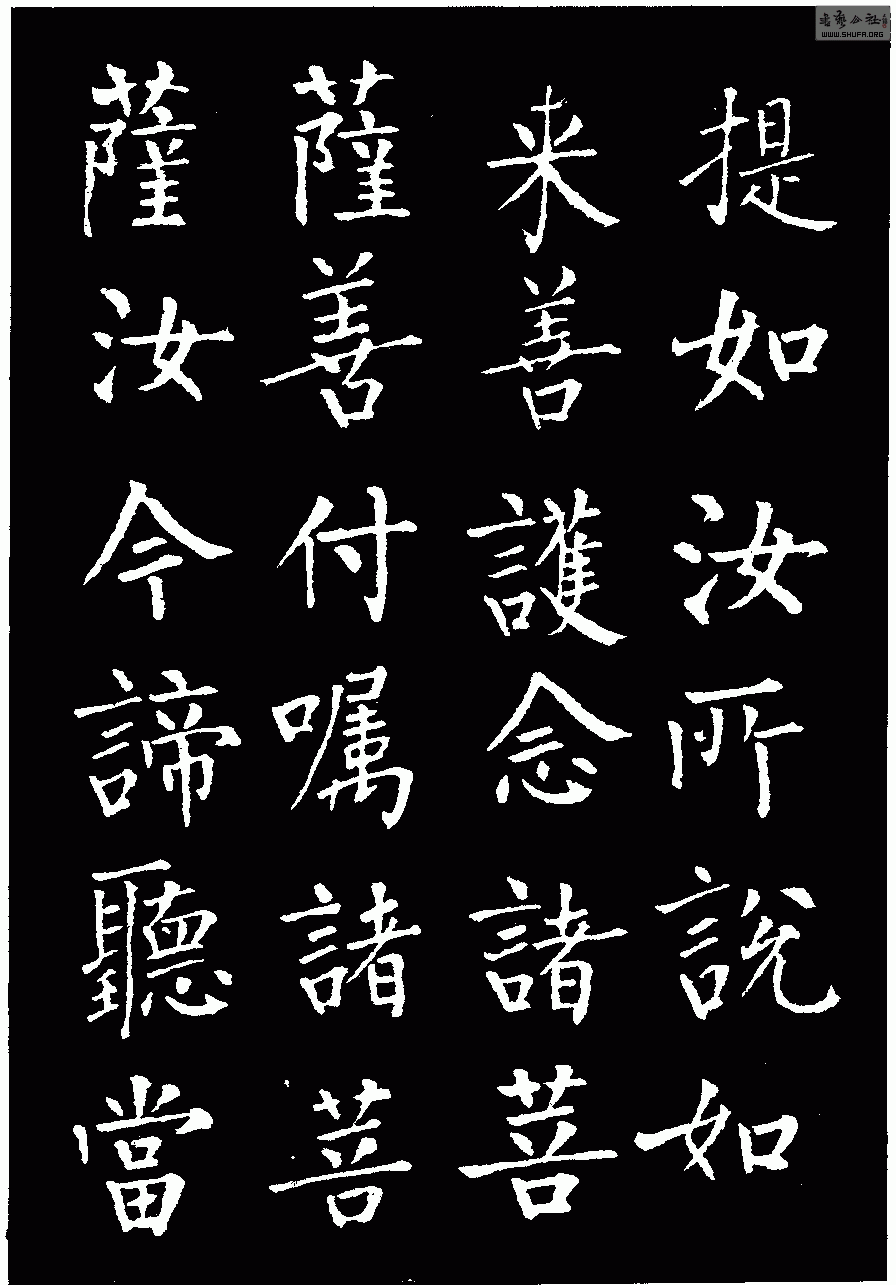 提如汝所說如
来善護念諸菩
薩善付嘱諸菩
薩汝今諦聽當
WWW.SHUFA.ORG